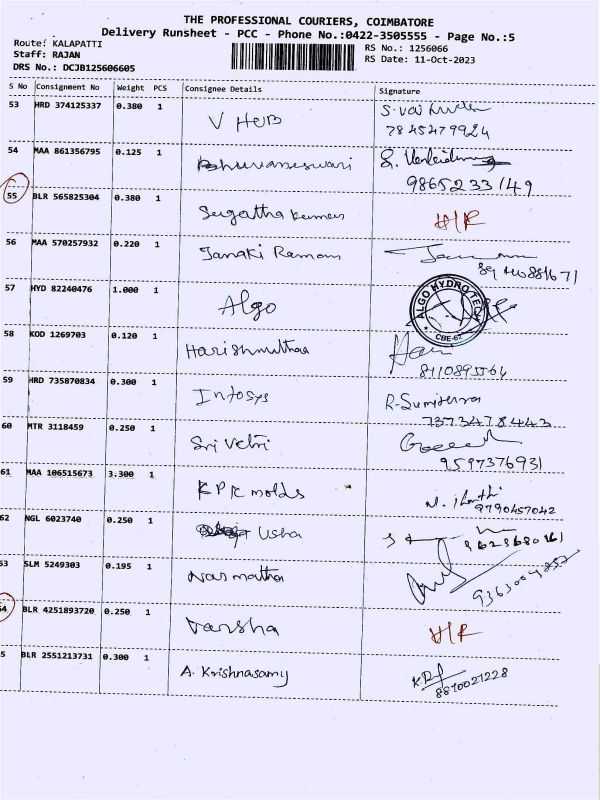 THE PROFESSIONAL COURIERS, COIMBATORE
Delivery Runsheet - PCC - Phone No.:0422-3505555 - Page No.:5
Route: KALAPATTI
RS No.: 1256066
Staff: RAJAN
RS Date: 11-Oct-2023
DRS No.: DCJB125606605
S No Consignment No Weight PCS Consignee Details Signature
53 HRD 374125337 0.380 1 V HUB
7845479924
54 MAA 861356795 0.125 1 Bhuvaneswari
9865233149
55 BLR 565825304 0.380 1 Sugatha kumar H/R
56 MAA 570257932 0.220 1 Janaki Ramam
57 HYD 82240476 1.000 1 Algo ALGO HYDRO TECH CBE-62
58 KOD 1269703 0.120 1 Harishmuthaa
8110895564
59 HRD 735870834 0.300 1 Infosys
7373478443
60 MTR 3118459 0.250 1 Sri Vetri
9597376931
61 MAA 106515673 3.300 1 KPR molds
9790457042
62 NGL 6023740 0.250 1 Usha
63 SLM 5249303 0.195 1 Narmatha
64 BLR 4251893720 0.250 1 Varsha H/R
5 BLR 2551213731 0.300 1 A. Krishnasamy
8870027228